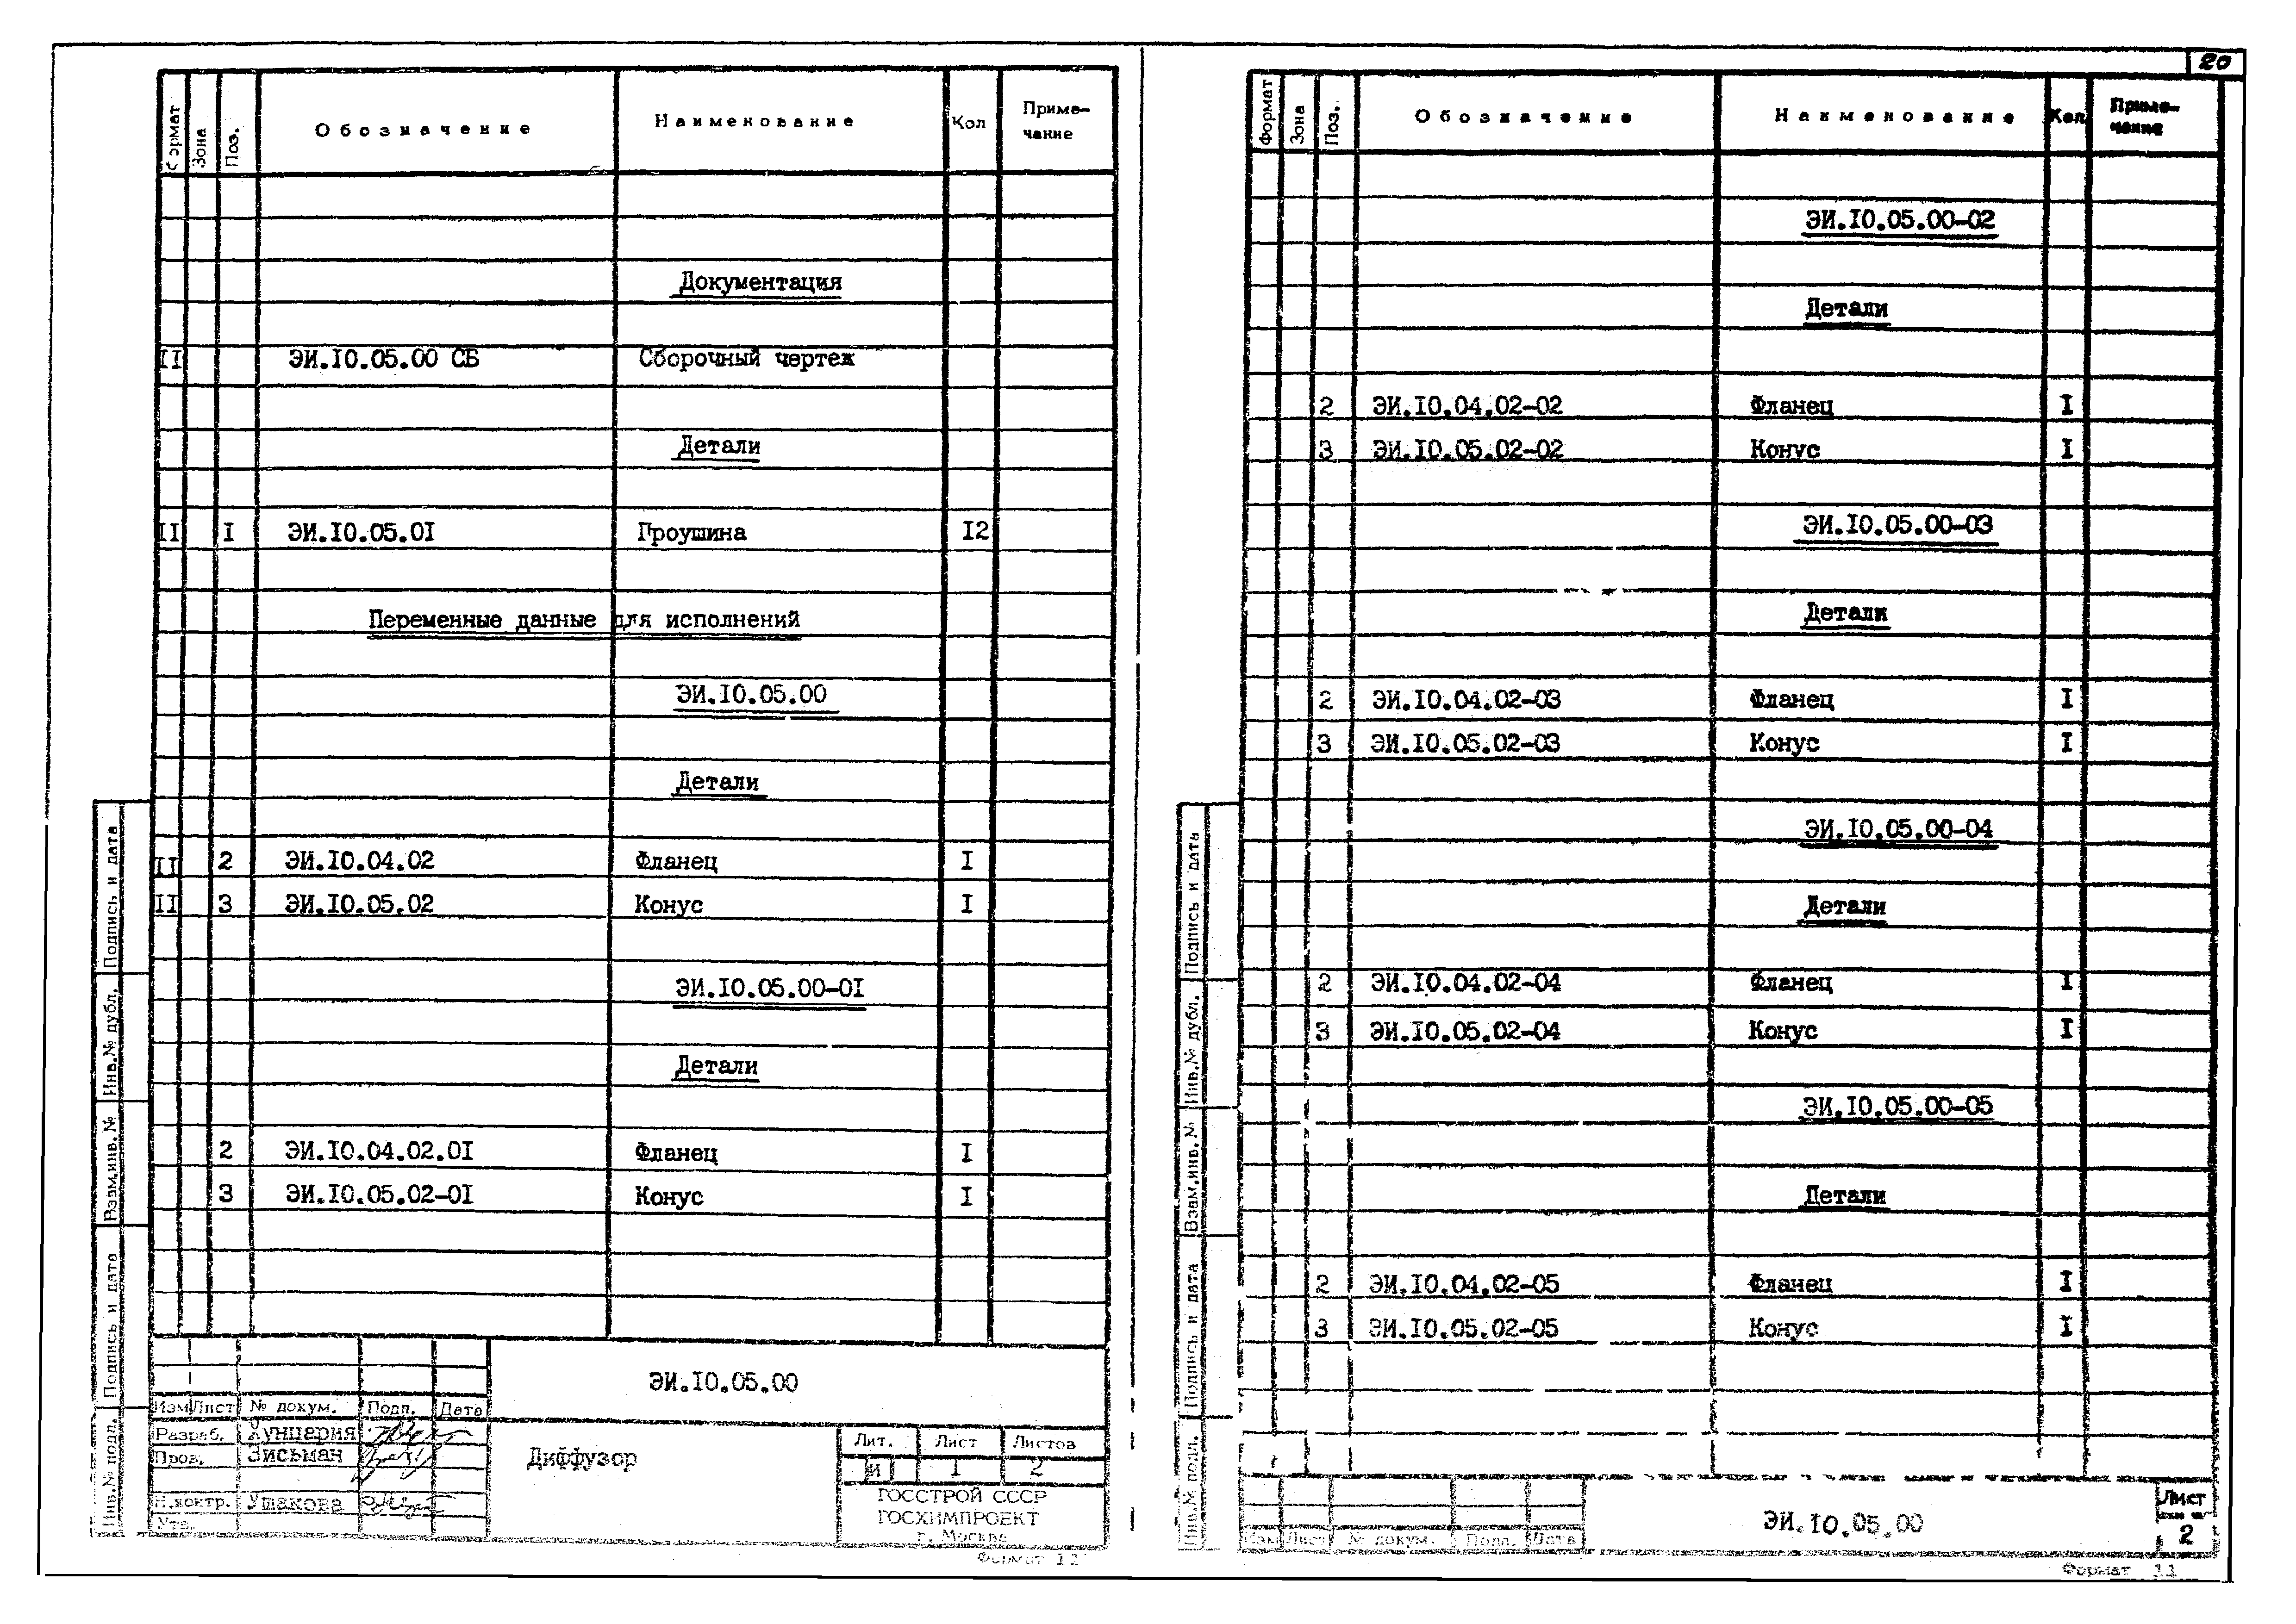 20
Формат Зона Поз. Обозначение Наименование Кол Приме-чание
Документация
II ЭИ.I0.05.00 СБ Сборочный чертеж
Детали
II I ЭИ.I0.05.0I Проушина I2
Переменные данные для исполнений
ЭИ.I0.05.00
Детали
II 2 ЭИ.I0.04.02 Фланец I
II 3 ЭИ.I0.05.02 Конус I
ЭИ.I0.05.00-0I
Детали
2 ЭИ.I0.04.02.0I Фланец I
3 ЭИ.I0.05.02-0I Конус I
Инв.№ подл. Подпись и дата Взам.инв.№ Инв.№ дубл. Подпись и дата
ЭИ.I0.05.00
Изм Лист № докум. Подп. Дата
Разраб. Хунцария
Пров. Зисьман
Н.контр. Ушакова
Утв.
Диффузор
Лит. Лист Листов
И 1 2
ГОССТРОЙ СССР
ГОСХИМПРОЕКТ
г. Москва
Формат 11
Формат Зона Поз. Обозначение Наименование Кол Приме-чание
ЭИ.I0.05.00-02
Детали
2 ЭИ.I0.04.02-02 Фланец I
3 ЭИ.I0.05.02-02 Конус I
ЭИ.I0.05.00-03
Детали
2 ЭИ.I0.04.02-03 Фланец I
3 ЭИ.I0.05.02-03 Конус I
ЭИ.I0.05.00-04
Детали
2 ЭИ.I0.04.02-04 Фланец I
3 ЭИ.I0.05.02-04 Конус I
ЭИ.I0.05.00-05
Детали
2 ЭИ.I0.04.02-05 Фланец I
3 ЭИ.I0.05.02-05 Конус I
Инв.№ подл. Подпись и дата Взам.инв.№ Инв.№ дубл. Подпись и дата
Изм Лист № докум. Подп. Дата
ЭИ.I0.05.00
Лист
2
Формат 11